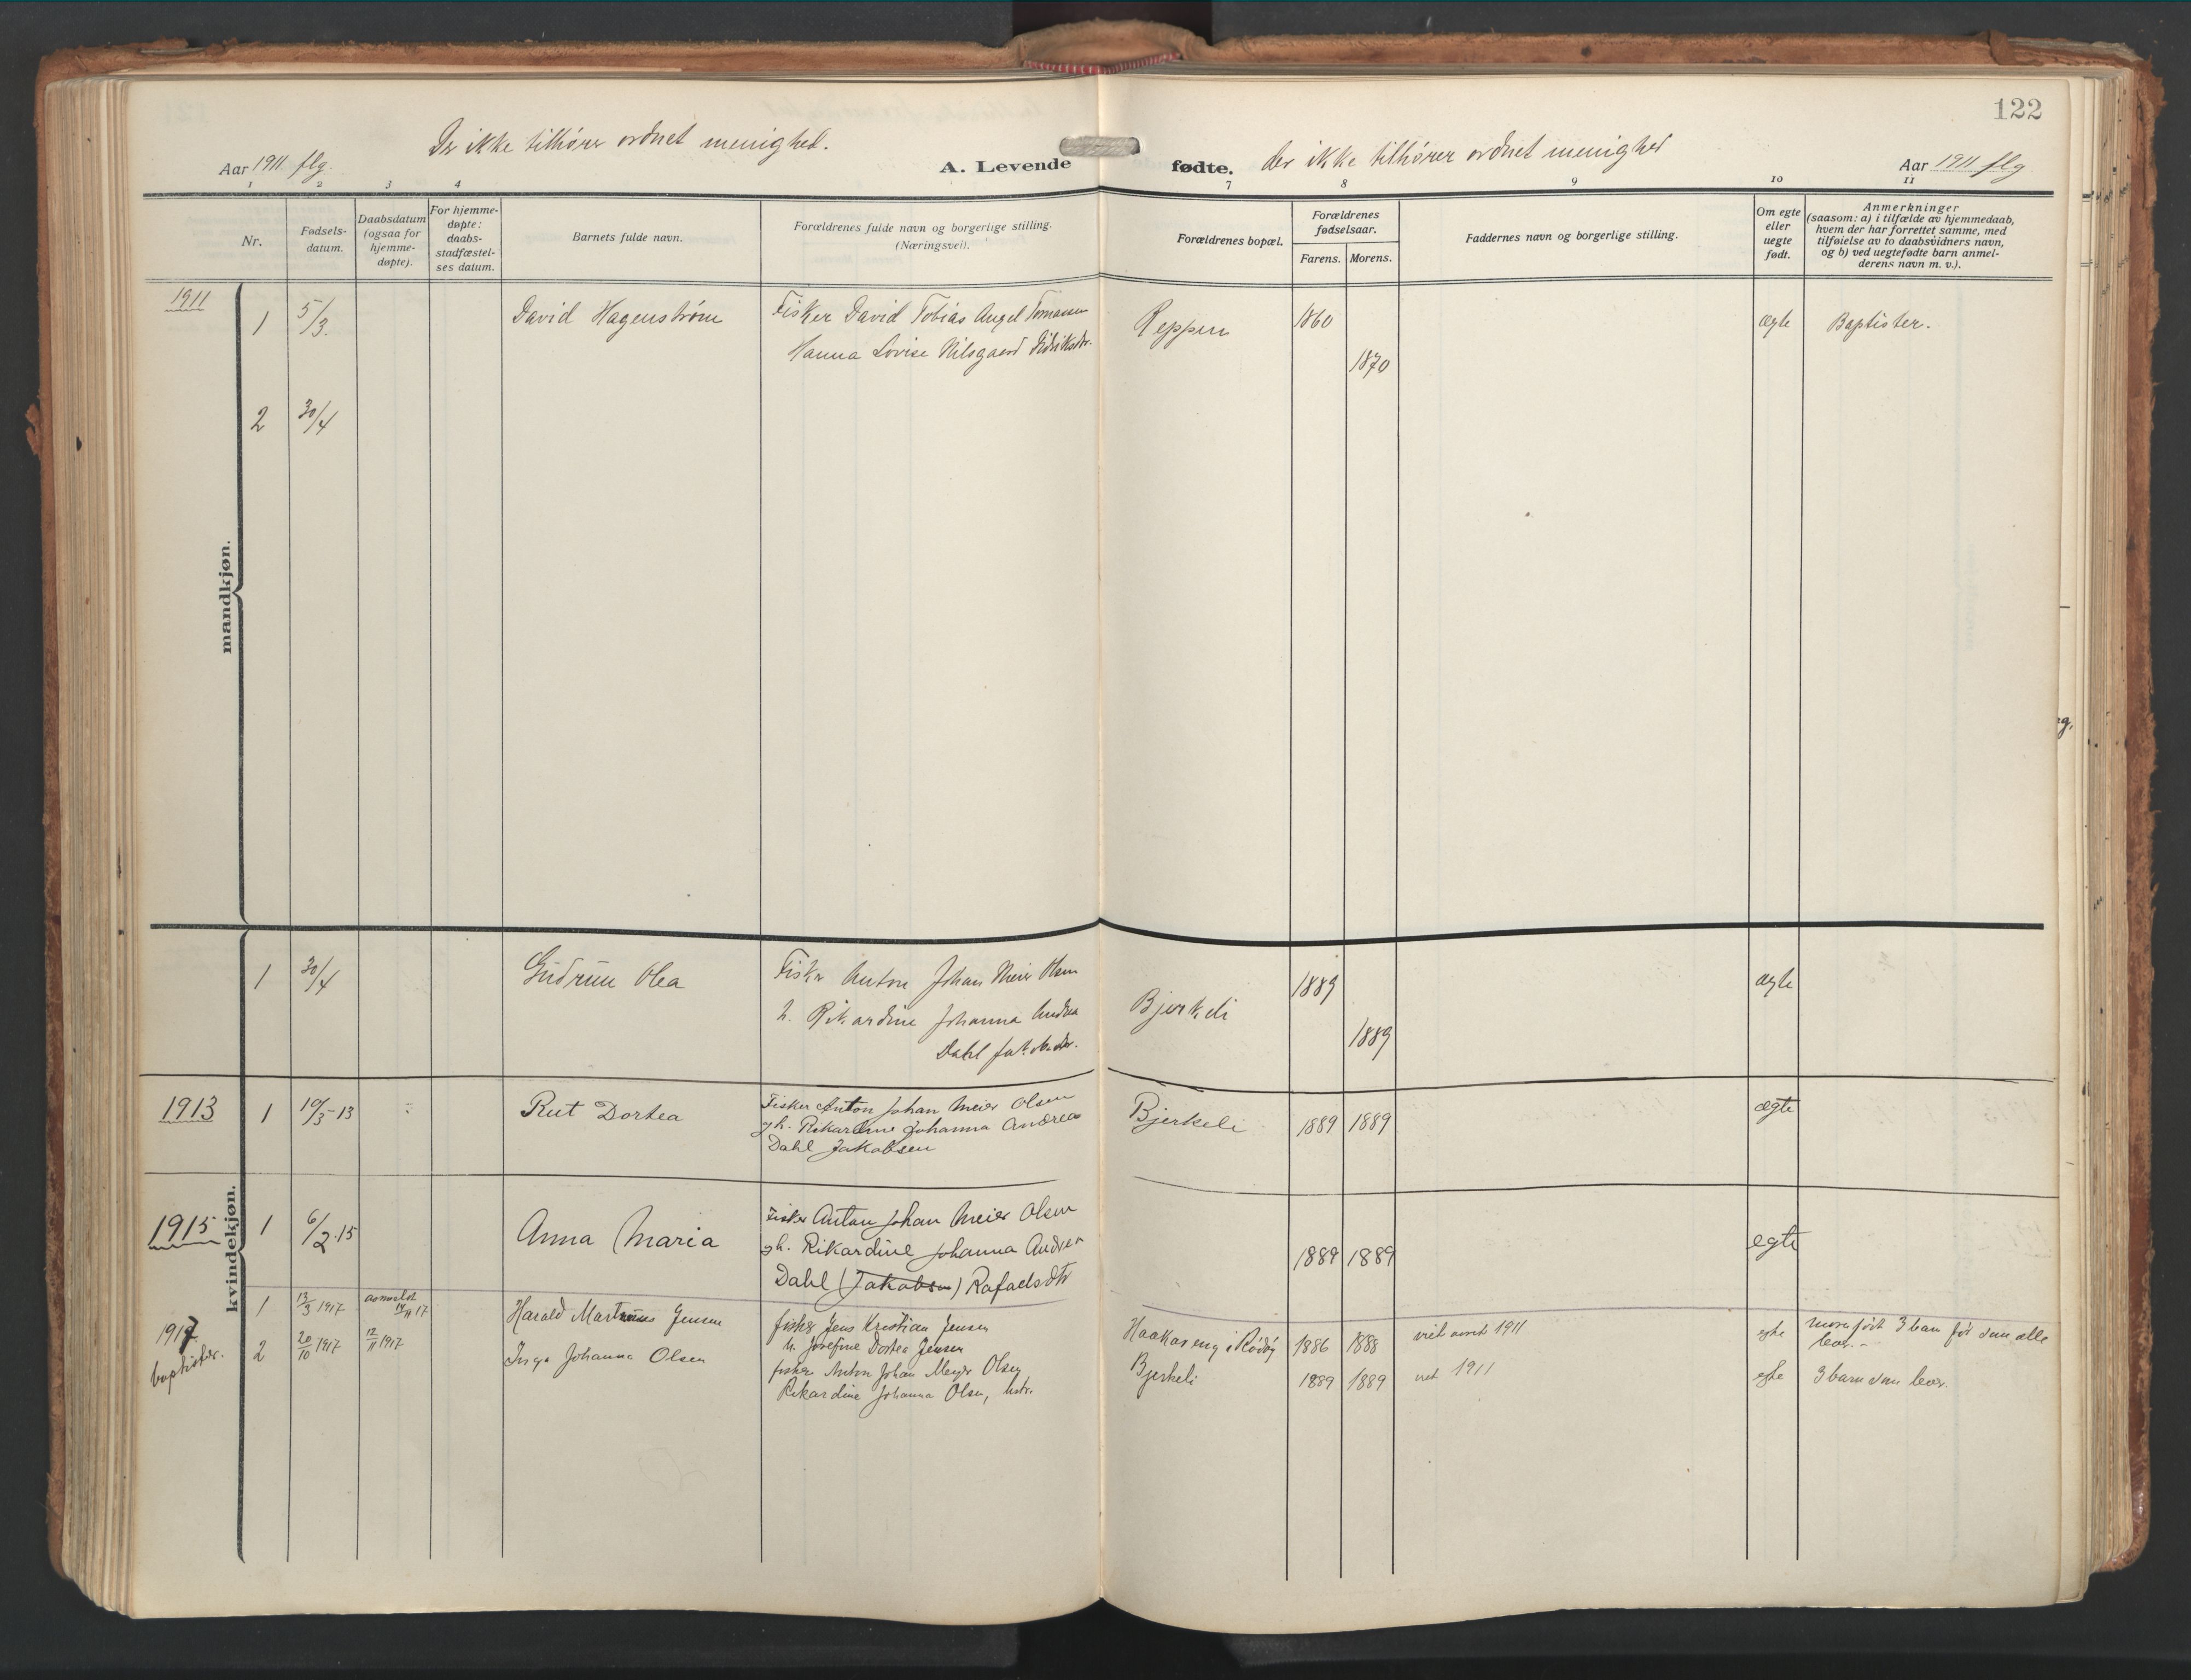 122
Aar 1911 flg.
De ikke tilhører ordnet menighed.
A. Levende fødte.
der ikke tilhører ordnet menighed
Aar 1911 flg
1 2 3 4 7 8 9 10 11
Nr.
Fødsels-
datum.
Daabsdatum
(ogsaa for
hjemme-
døpte).
For hjemme-
døpte:
daabs-
stadfæstel-
ses datum.
Barnets fulde navn.
Forældrenes fulde navn og borgerlige stilling.
(Næringsvei).
Forældrenes bopæl.
Forældrenes
fødselsaar.
Farens. Morens.
Faddernes navn og borgerlige stilling.
Om egte
eller
uegte
født.
Anmerkninger
(saasom: a) i tilfælde av hjemmedaab,
hvem der har forrettet samme, med
tilføielse av to daabsvidners navn,
og b) ved uegtefødte barn anmel-
derens navn m. v.).
mandkjøn.
1911
1 5/3. David Hagenstrøm Fisker David Tobias Angel Tomassen Reppen 1860 ægte Baptister.
Hanna Lovise Nilsgaard Didriksdtr. 1870
2 30/4
kvindekjøn.
1 30/4 Gudrun Olea Fisker Anton Johan Meier Olsen Bjerkeli 1889 ægte
h. Rikardine Johanna Andrea 1889
Dahl
1913 1 10/3-13 Rut Dortea Fisker Anton Johan Meier Olsen Bjerkeli 1889 1889 ægte
gh. Rikardine Johanna Andrea
Dahl Jakobsen
1915 1 6/2-15 Anna Maria Fisker Anton Johan Meier Olsen 1889 1889 egte
gh. Rikardine Johanna Andrea
Dahl (Jakobsen) Rafaelsdtr
1917
baptister.
1 13/3 1917 anmeldt 14/4 17 Harald Martinus Jensen fisker Jens Kristian Jensen Haakaveng i Rødøy 1886 1888 viet 1911 egte moren født 3 barn før som alle
h. Josefine Dortea Jensen lever.-
2 20/10 1917 12/11 1917 Inga Johanna Olsen fisker Anton Johan Meyer Olsen Bjerkeli 1889 1889 viet 1911 egte 3 barn som lever.
Rikardine Johanna Olsen, hstr.